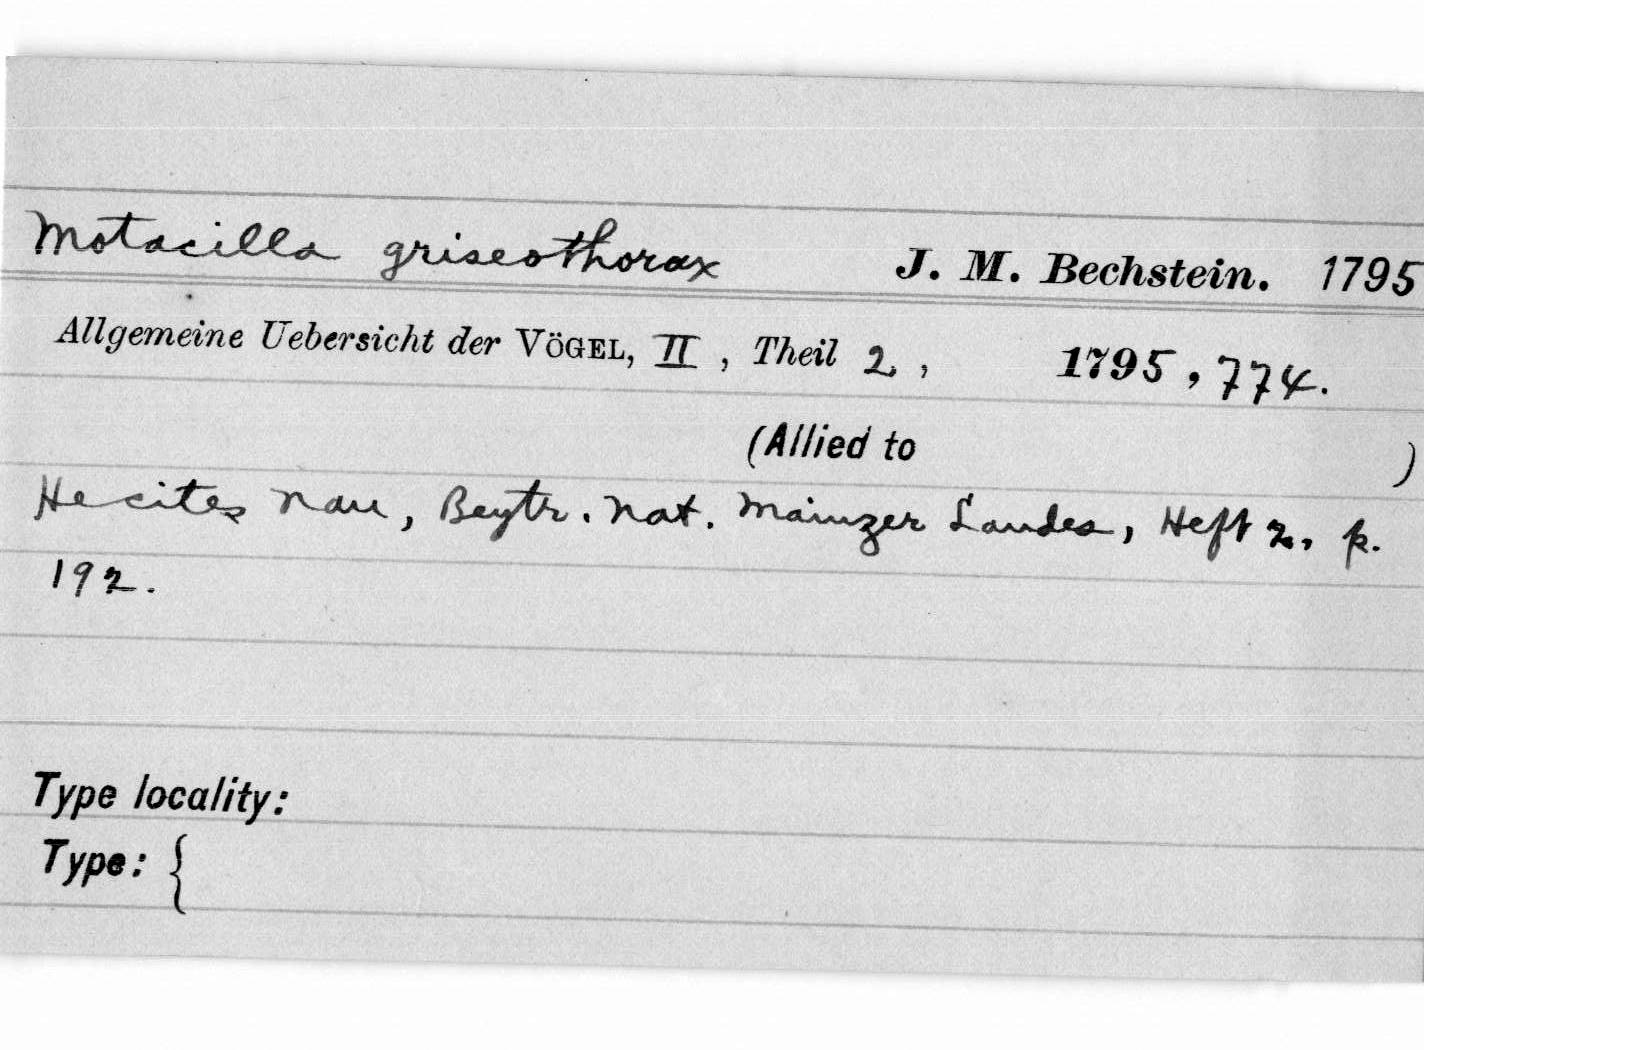 Motacilla griseothorax J. M. Bechstein. 1795
Allgemeine Uebersicht der VÖGEL, II, Theil 2, 1795, 774.
(Allied to )
He cites Nau, Beytr. Nat. Mainzer Landes, Heft 2, p.
192.
Type locality:
Type: {